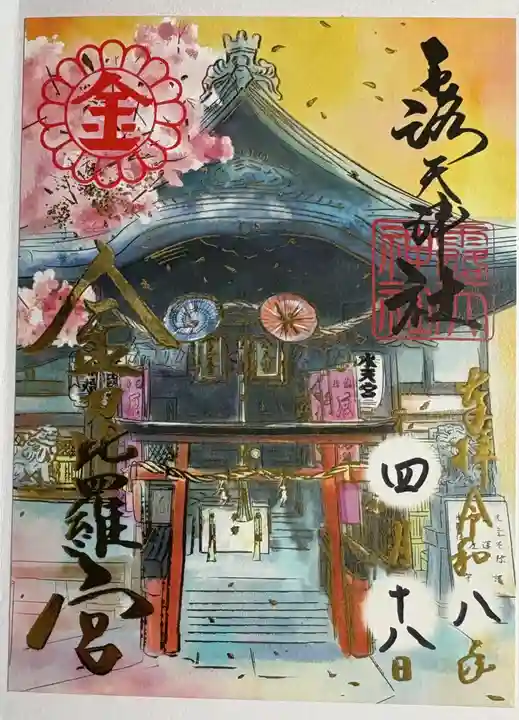 露天神社
奉拝 令和八年
四月十八日
金
金刀比羅宮
水天宮